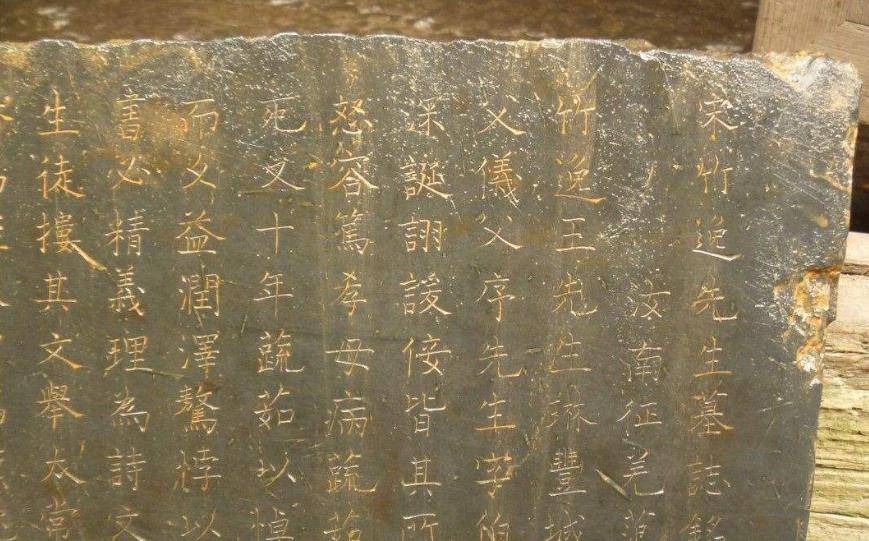 宋竹逸先生墓誌銘
汝南征羌
竹逸王先生琳豐城
父儀父序先生字伯
深誕詡諼佞皆其所
怒容篤孝母病蔬茹
死又十年蔬茹以悼
而久益潤澤驁悖以
書必精義理為詩文
生徒摟其文舉太常